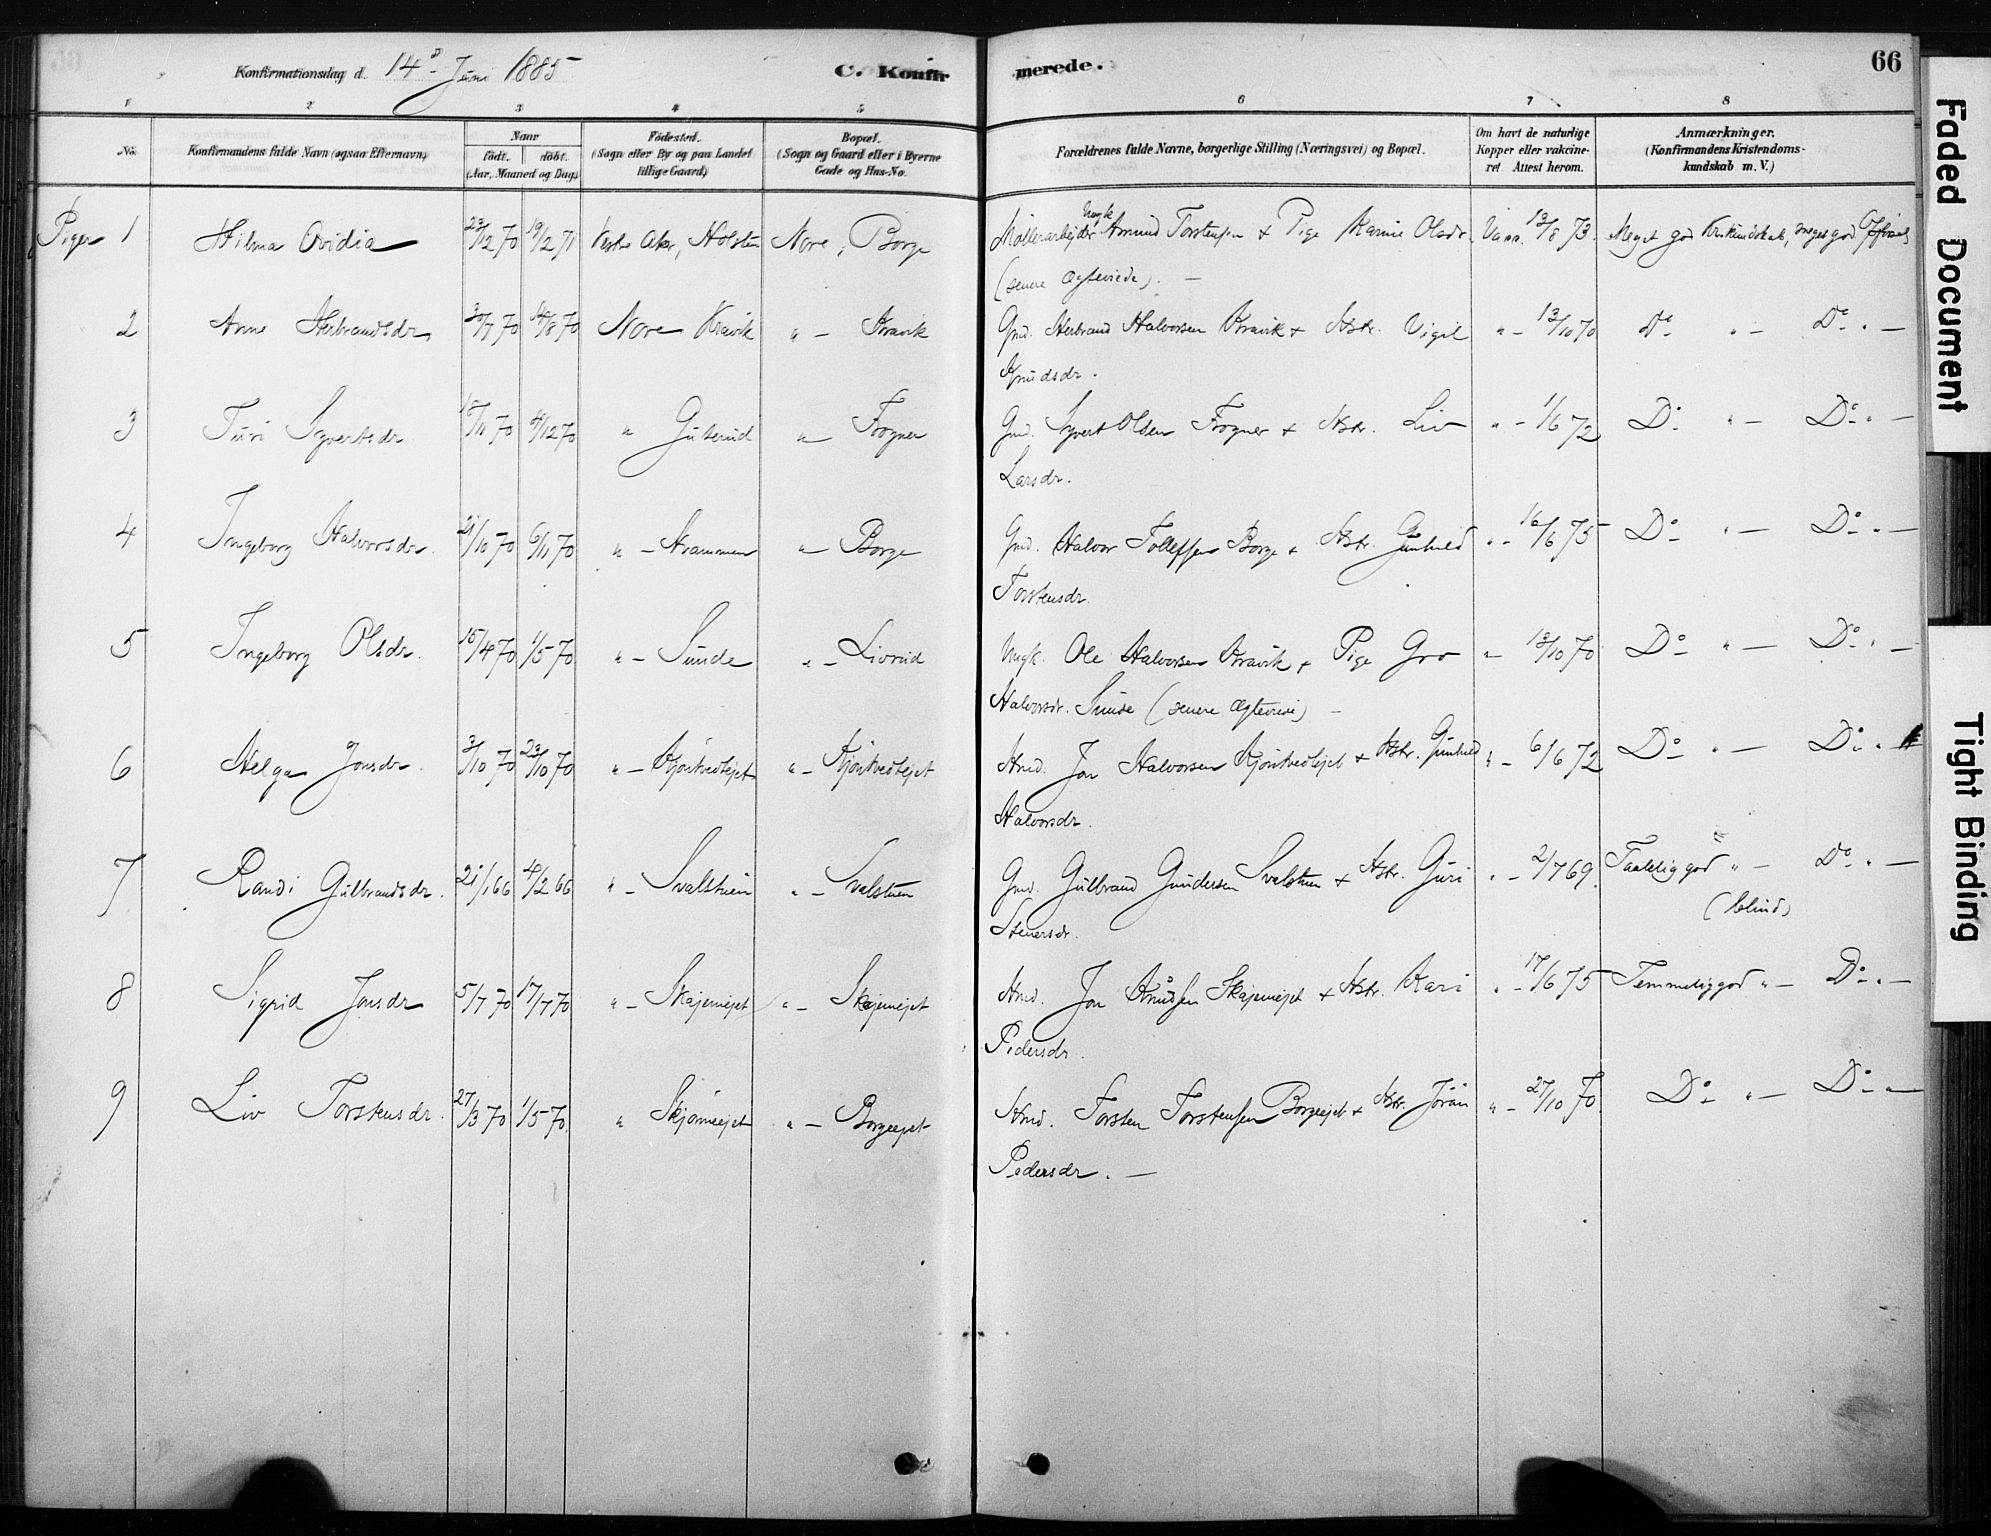 Konfirmationsdag d. 14de Juni 1885 C. Konfir merede. 66
1 2 3 4 5 6 7 8
No. Konfirmandens fulde Navn (ogsaa Efternavn) Naar født. døbt. (Aar, Maaned og Dag.) Fødested. (Sogn eller By og paa Landet tillige Gaard) Bopæl. (Sogn og Gaard eller i Byerne Gade og Hus-No. Forældrenes fulde Navne, borgerlige Stilling (Næringsvei) og Bopæl. Om havt de naturlige Kopper eller vakcineret Attest herom. Anmærkninger. (Konfirmandens Kristendomskundskab m. V.)
Piger 1 Hilma Ovidia 23/12 70 19/2 71 Vestre Aker, Holsten Nore, Borge Møllerarbejder Ungk. Amund Torstensen + Pige Karine Olsdr. Vacc. 13/8 73. Meget god Kr.kundskab, meget god
(senere Ægteviede). —
2 Anne Herbrandsdr. 30/7 70 14/8 70 Nore Kravik " — Kravik Gmd. Herbrand Halvorsen Kravik + Hstr. Vigil " — 13/10 70 Do " — Do " —
Knudsdr.
3 Turi Syvertsdr 15/11 70 4/12 70 " Guterud " Frogner Gmd. Syvert Olsen Frogner + Hstr. Liv " — 1/6 72 Do " — Do " —
Larsdr.
4 Ingeborg Halvorsdr. 21/10 70 6/11 70 " — Hvammen " Borge Gmd. Halvor Tollefsen Borge + Hstr. Gunhild " — 16/6 75 Do " — Do " —
Torstensdr.
5 Ingeborg Olsdr. 15/4 70 1/5 70 " — Sunde " — Livrud Ungk. Ole Halvorsen Kravik + Pige Gro " 13/10 70 Do " — Do " —
Halvorsdr. Sunde (senere Ægteviede) —
6 Helga Jonsdr. 3/10 70 23/10 70 " — Kjønkvedlejet " — Kjønkvedlejet Hmd. Jon Halvorsen Kjønkvedlejet + Hstr. Gunhild " — 6/6 72 Do " — Do "
Halvorsdr.
7 Randi Gulbrandsdr. 21/1 66 4/2 66 " — Svalstuen " — Svalstuen Gmd. Gulbrand Gundersen Svalstuen + Hstr. Guri " — 2/7 69. Taalelig god " — Do " —
Stenersdr. (blind)
8 Sigrid Jonsdr 5/7 70 17/7 70 " — Skajemejet " — Skajemejet Hmd. Jon Knudsen Skajemejet + Hstr. Kari " — 17/6 75 Temmelig god " — Do " —
Pedersdr.
9 Liv Torstensdr. 27/3 70 1/5 70. " Skjønneejet " — Borgeejet Hmd. Torsten Torstensen Borgeejet + Hstr. Jøran " — 27/10 70. Do " — Do " —
Pedersdr. —
Faded Document
Tight Binding